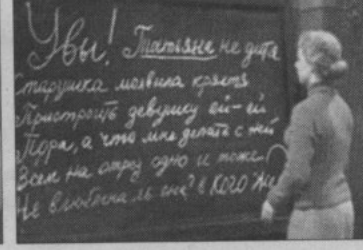 Увы! Татьяна не дитя
Старушка молвила кряхтя
Пристроить девушку ей-ей
Пора, а что мне делать с ней
Всем на отрез одно и тоже
Не влюблена ль она? в КОГО же